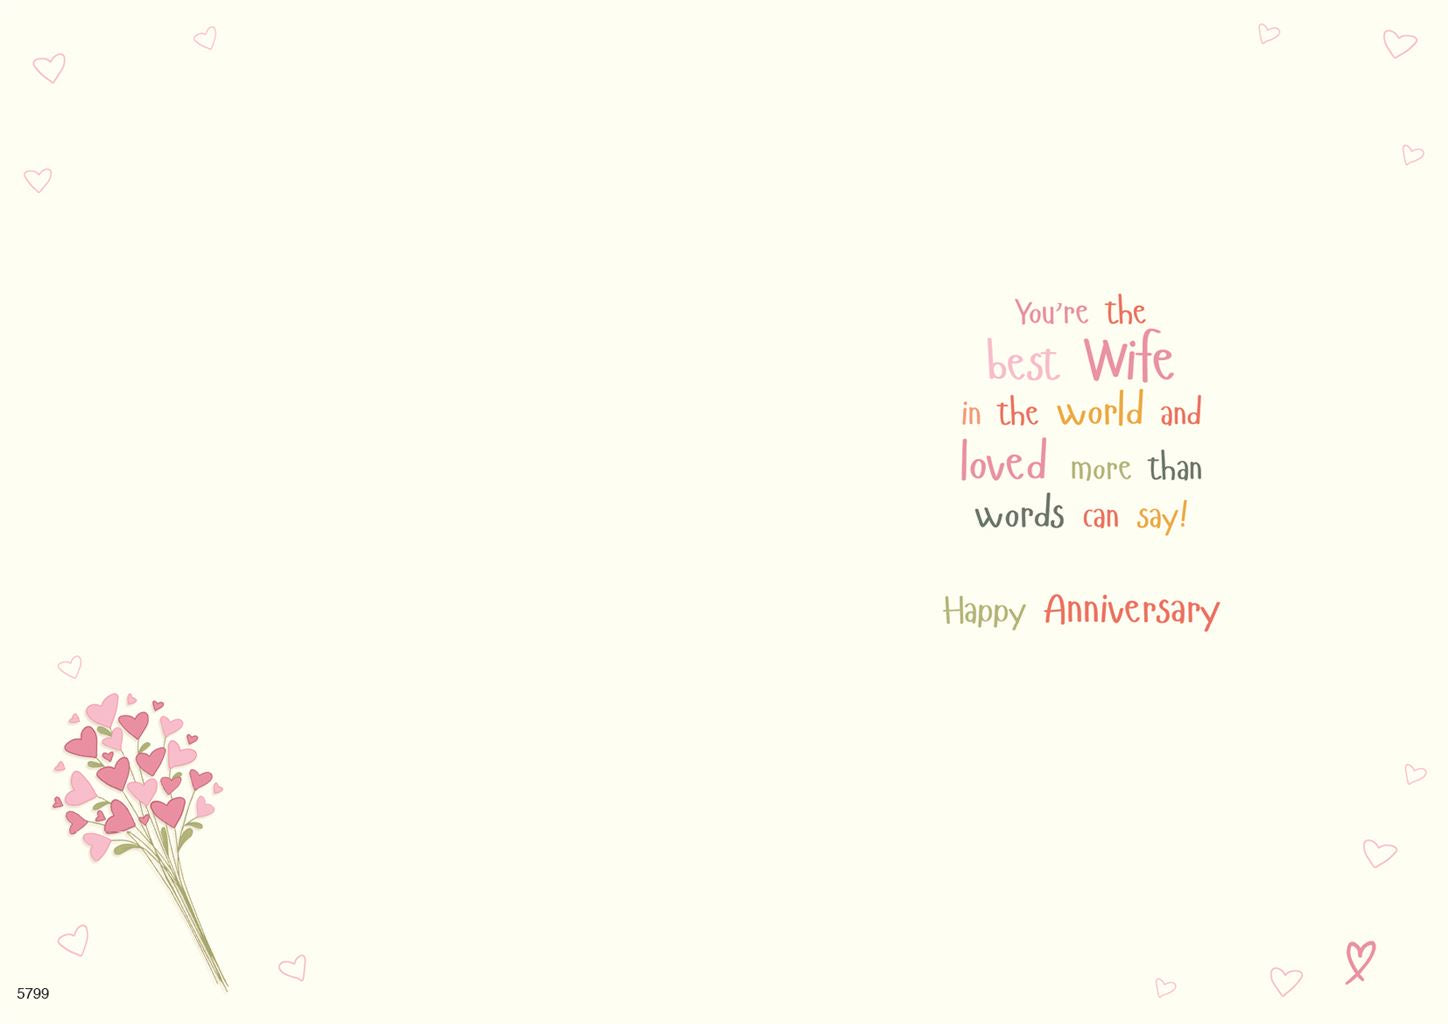 You're the
best Wife
in the world and
loved more than
words can say!
Happy Anniversary
5799